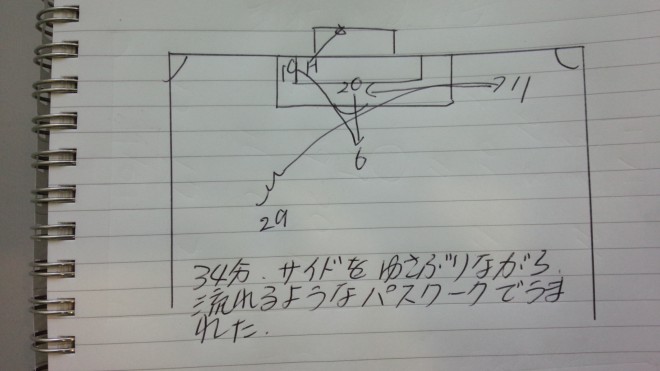 19 H
20 11
6
29
34分.サイドをゆさぶりながら.
流れるようなパスワークでうま
れた.